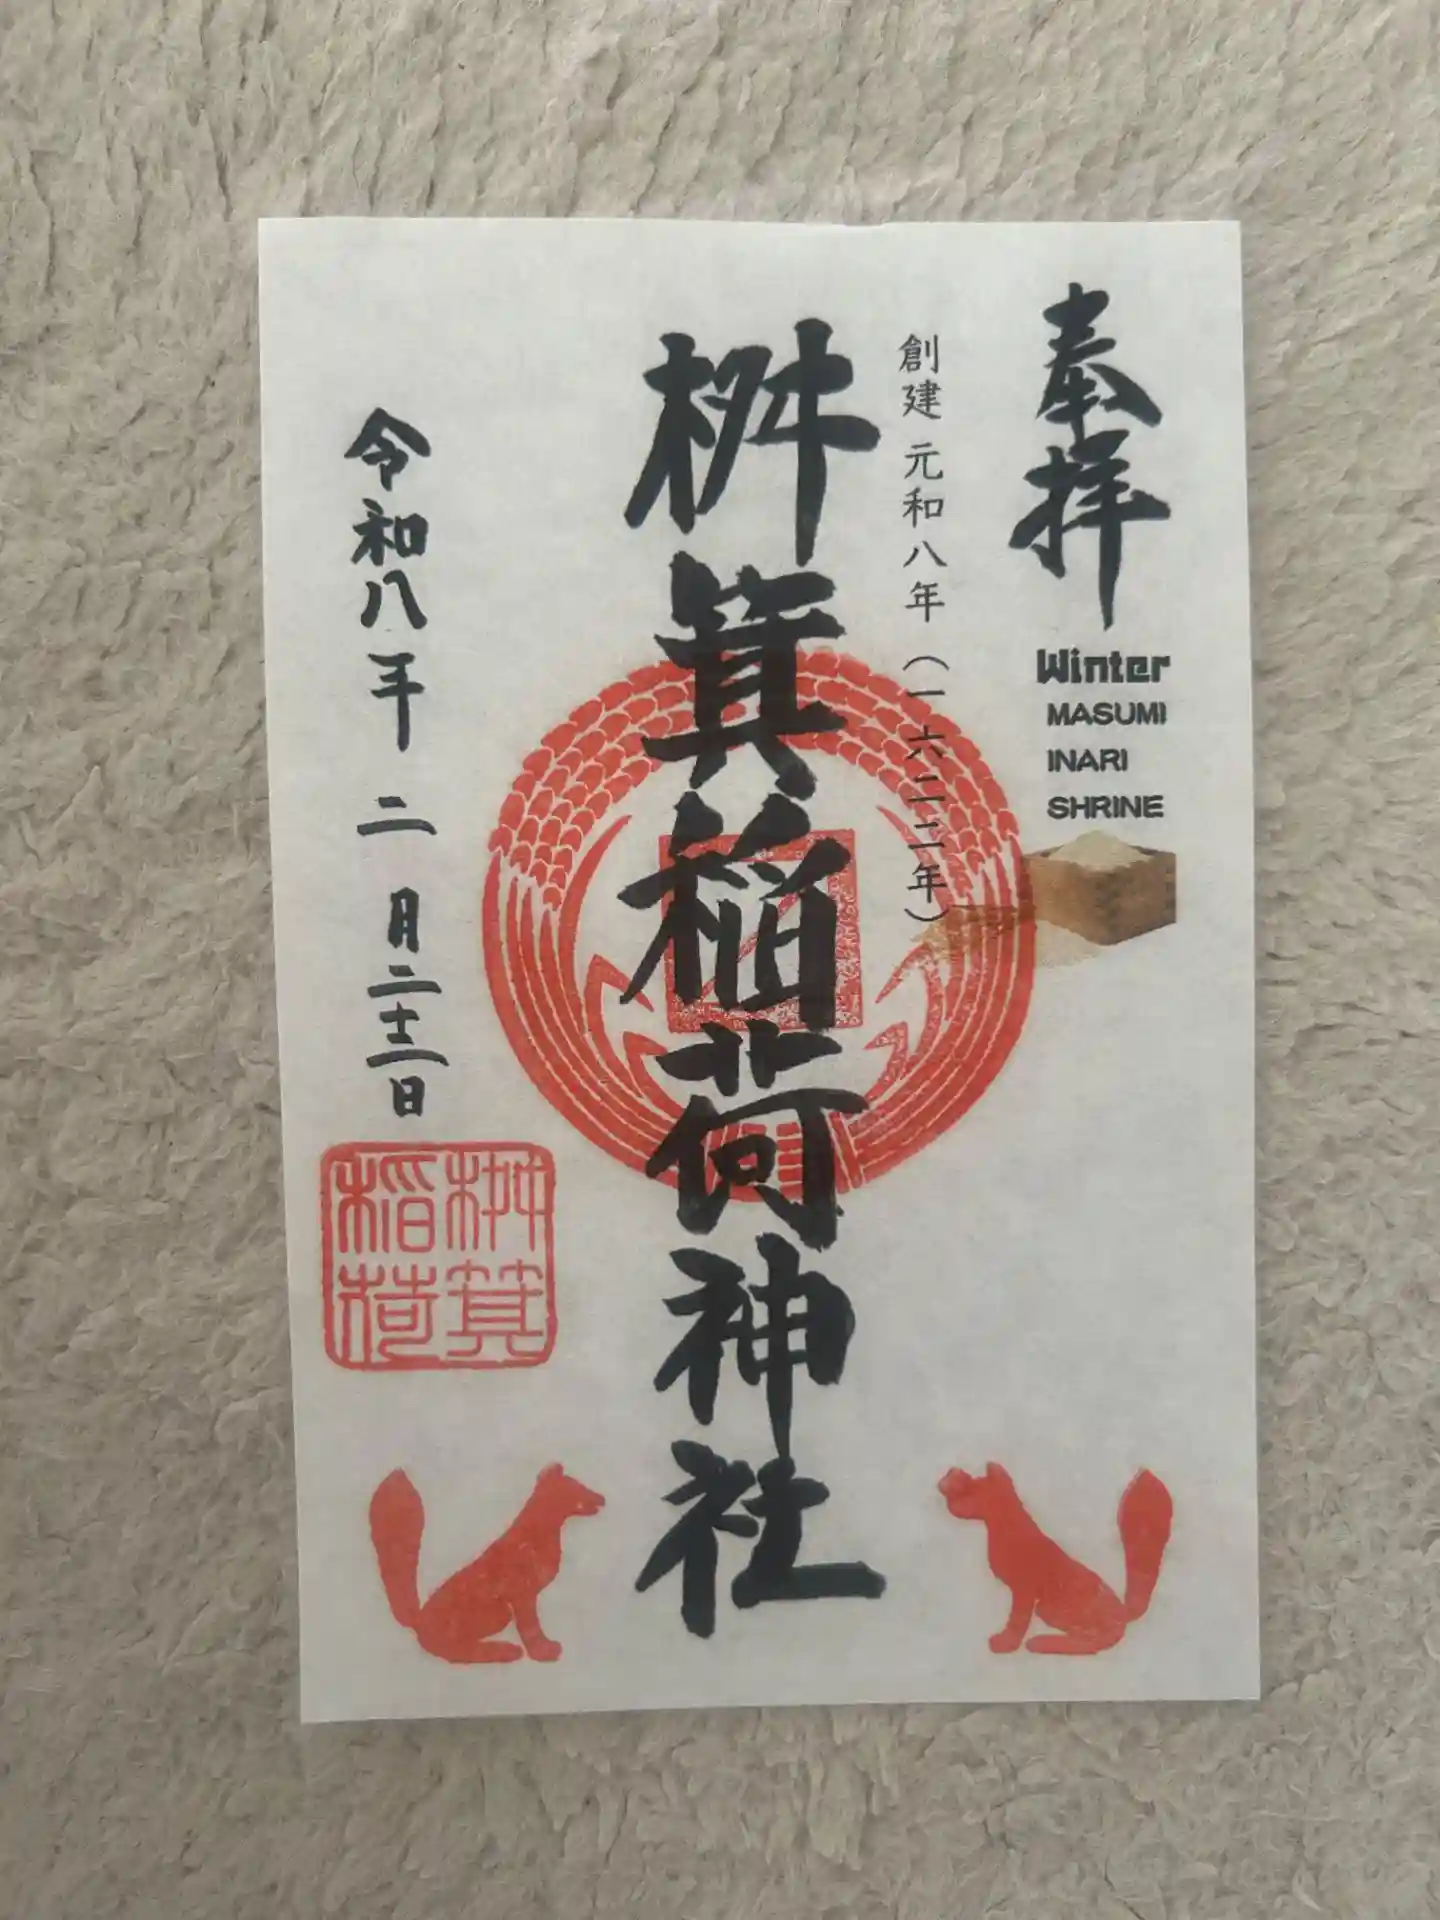 奉拝
Winter
MASUMI
INARI
SHRINE
創建 元和八年(一六二二年)
桝箕稲荷神社
令和八年 二月二十三日
桝箕
稲荷